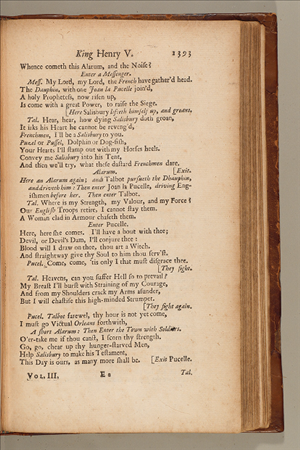 King Henry V. 1393
Whence cometh this Alarum, and the Noise?
Enter a Messenger.
Mess. My Lord, my Lord, the French have gather'd head.
The Dauphin, with one Joan la Pucelle join'd,
A holy Prophetess, now risen up,
Is come with a great Power, to raise the Siege.
[Here Salisbury lifteth himself up, and groans.
Tal. Hear, hear, how dying Salisbury doth groan,
It irks his Heart he cannot be reveng'd,
Frenchmen, I'll be a Salisbury to you.
Puzel or Pussel, Dolphin or Dog-fish,
Your Hearts I'll stamp out with my Horses heels.
Convey me Salisbury into his Tent,
And then we'll try, what these dastard Frenchmen dare.
Alarum. [Exit.
Here an Alarum again; and Talbot pursueth the Dauphin,
and driveth him: Then enter Joan la Pucelle, driving Eng-
lishmen before her. Then enter Talbot.
Tal. Where is my Strength, my Valour, and my Force?
Our English Troops retire, I cannot stay them.
A Woman clad in Armour chaseth them.
Enter Pucelle.
Here, here she comes. I'll have a bout with thee;
Devil, or Devil's Dam, I'll conjure thee:
Blood will I draw on thee, thou art a Witch.
And straightway give thy Soul to him thou serv'st.
Pucel. Come, come, 'tis only I that must disgrace thee.
[They fight.
Tal. Heavens, can you suffer Hell so to prevail?
My Breast I'll burst with straining of my Courage,
And from my Shoulders crack my Arms asunder,
But I will chastise this high-minded Strumpet.
[They fight again.
Pucel. Talbot farewel, thy hour is not yet come,
I must go Victual Orleans forthwith,
A short Alarum: Then Enter the Town with Soldiers.
O'er-take me if thou canst, I scorn thy strength.
Go, go, chear up thy hunger-starved Men,
Help Salisbury to make his Testament,
This Day is ours, as many more shall be. [Exit Pucelle.
VOL. III. E e Tal.